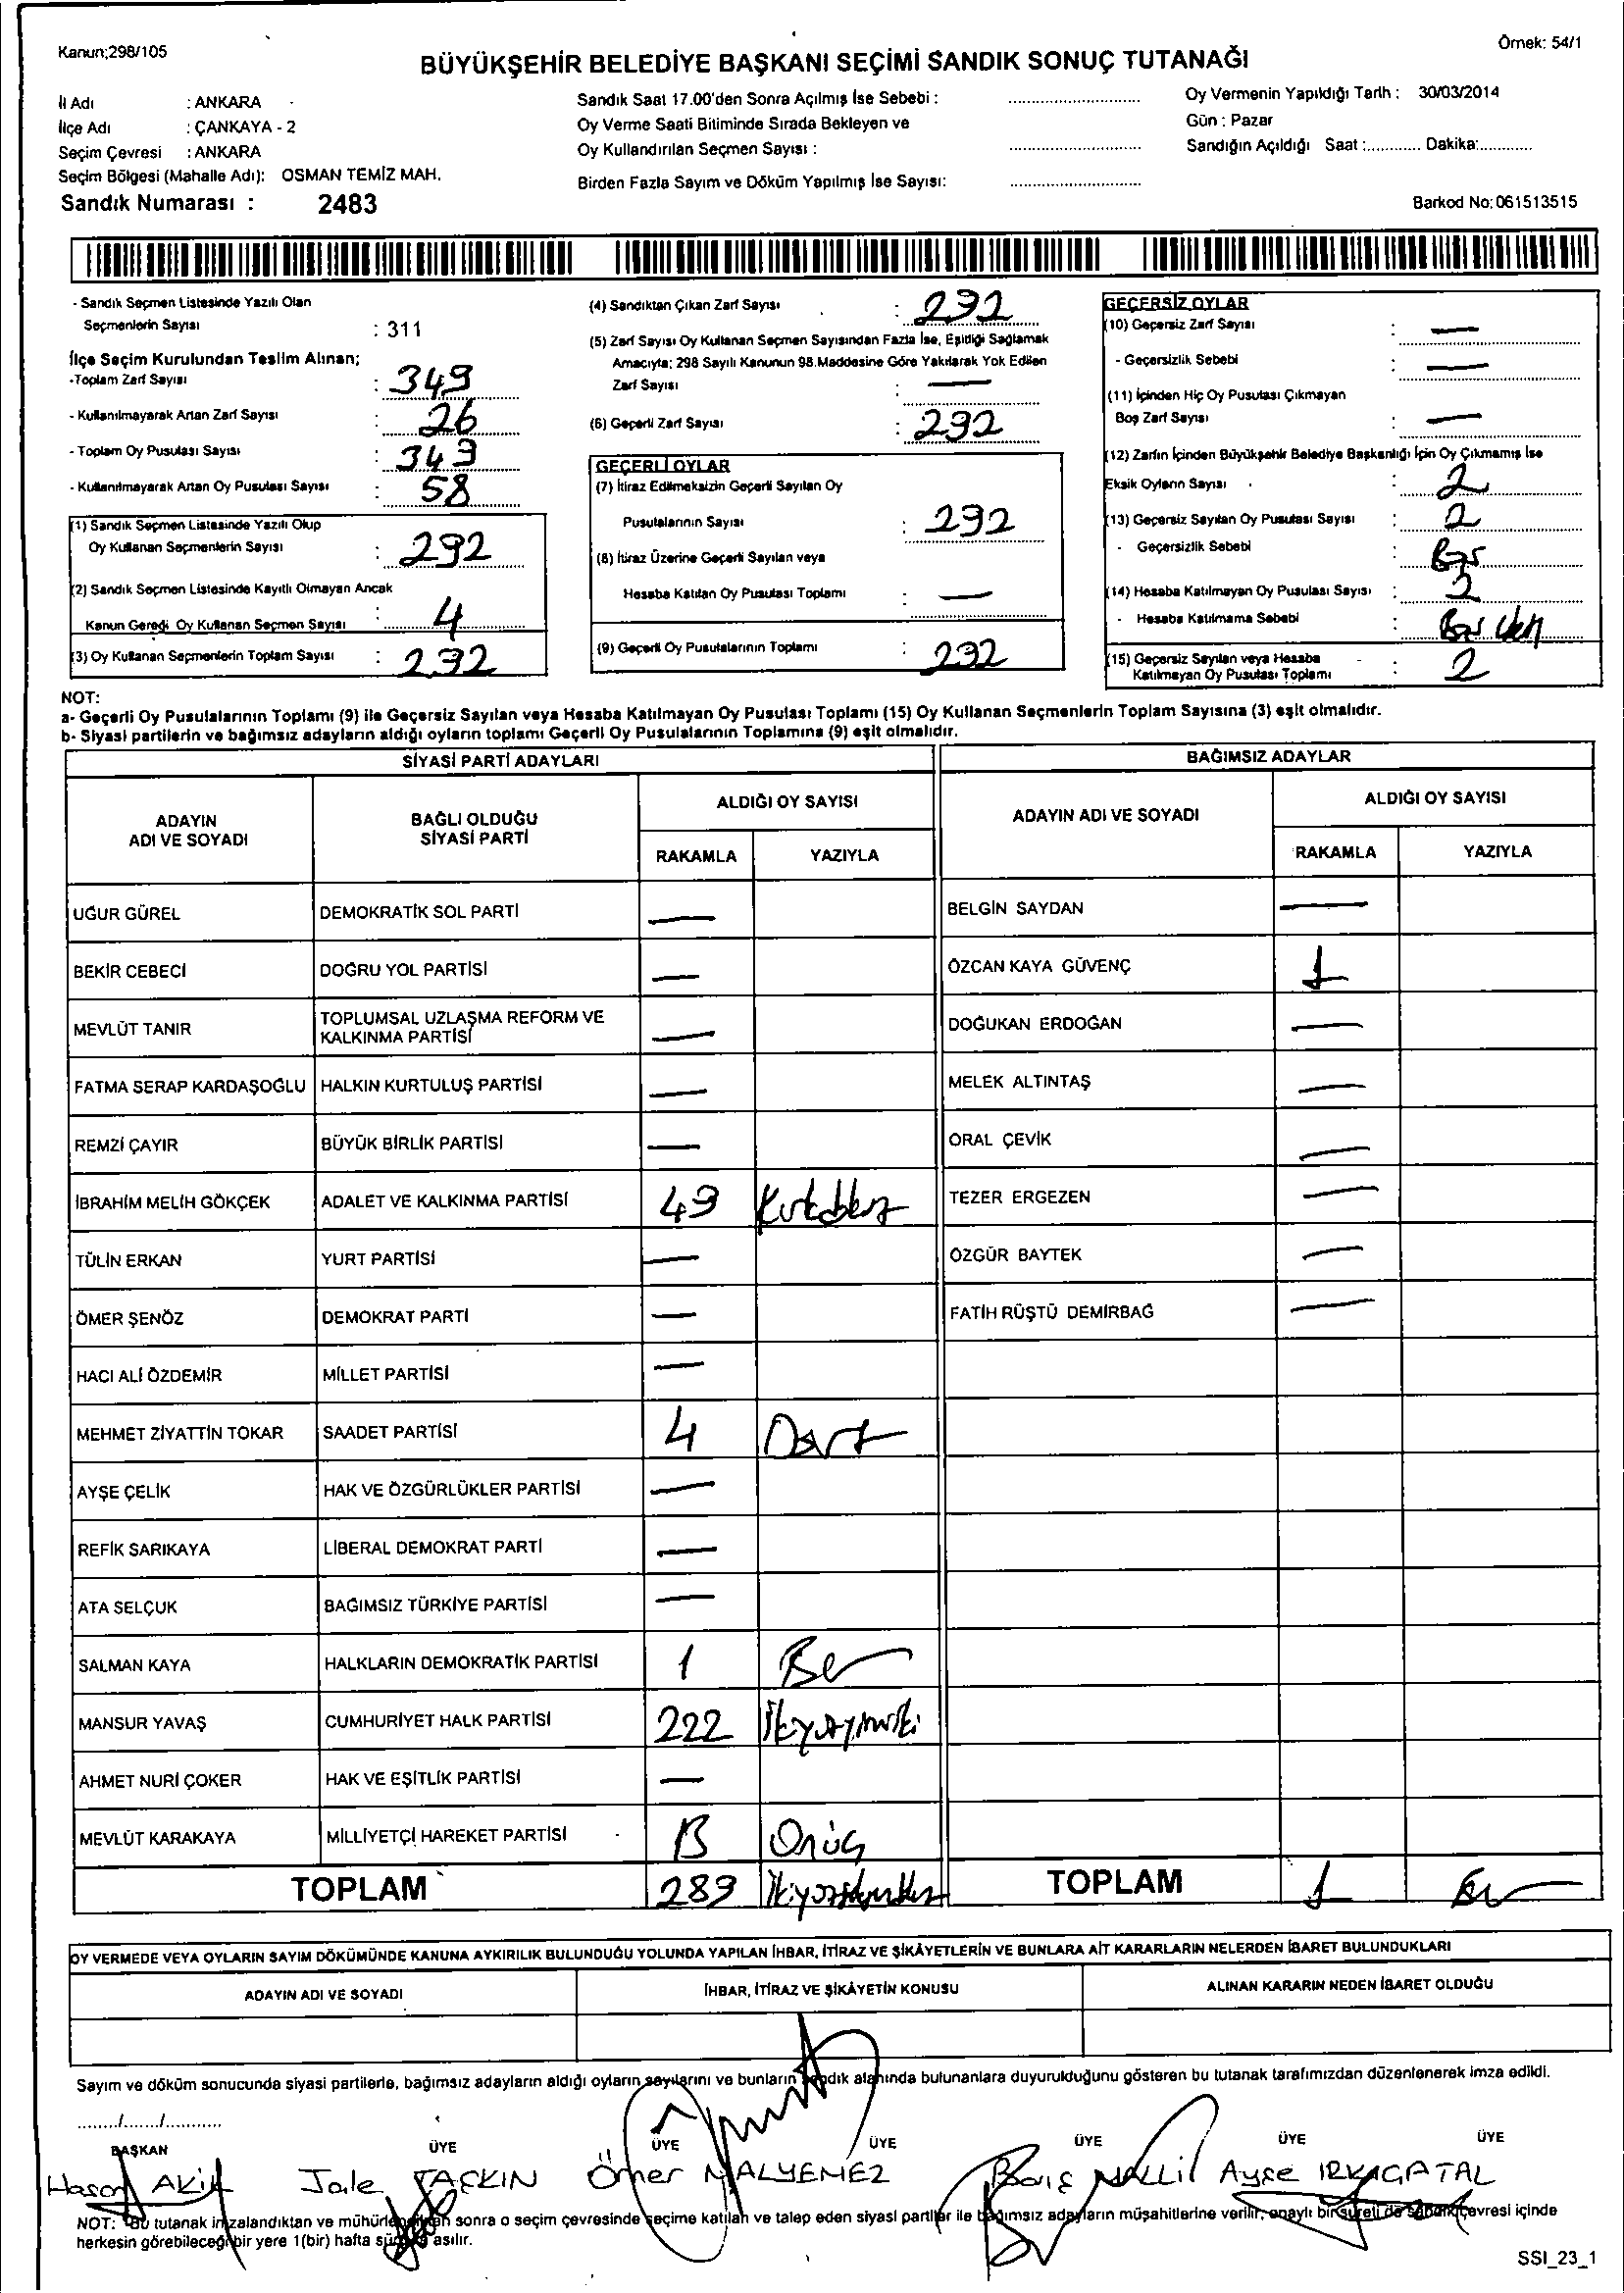 Kanun;298/105
Örnek: 54/1
BÜYÜKŞEHİR BELEDİYE BAŞKANI SEÇİMİ SANDIK SONUÇ TUTANAĞI
İl Adı : ANKARA
İlçe Adı : ÇANKAYA - 2
Seçim Çevresi : ANKARA
Seçim Bölgesi (Mahalle Adı): OSMAN TEMİZ MAH.
Sandık Numarası : 2483
Sandık Saat 17.00'den Sonra Açılmış İse Sebebi :
Oy Verme Saati Bitiminde Sırada Bekleyen ve
Oy Kullandırılan Seçmen Sayısı :
Birden Fazla Sayım ve Döküm Yapılmış İse Sayısı:
Oy Vermenin Yapıldığı Tarih : 30/03/2014
Gün : Pazar
Sandığın Açıldığı Saat :............ Dakika:............
Barkod No: 061513515
- Sandık Seçmen Listesinde Yazılı Olan
Seçmenlerin Sayısı : 311
İlçe Seçim Kurulundan Teslim Alınan;
-Toplam Zarf Sayısı : 349
- Kullanılmayarak Artan Zarf Sayısı : 26
- Toplam Oy Pusulası Sayısı : 349
- Kullanılmayarak Artan Oy Pusulası Sayısı : 58
(1) Sandık Seçmen Listesinde Yazılı Olup
Oy Kullanan Seçmenlerin Sayısı : 292
(2) Sandık Seçmen Listesinde Kayıtlı Olmayan Ancak
Kanun Gereği Oy Kullanan Seçmen Sayısı : 4
(3) Oy Kullanan Seçmenlerin Toplam Sayısı : 292
(4) Sandıktan Çıkan Zarf Sayısı : 292
(5) Zarf Sayısı Oy Kullanan Seçmen Sayısından Fazla İse, Eşitliği Sağlamak
Amacıyla; 298 Sayılı Kanunun 98.Maddesine Göre Yakılarak Yok Edilen
Zarf Sayısı : —
(6) Geçerli Zarf Sayısı : 292
GEÇERLİ OYLAR
(7) İtiraz Edilmeksizin Geçerli Sayılan Oy
Pusulalarının Sayısı : 292
(8) İtiraz Üzerine Geçerli Sayılan veya
Hesaba Katılan Oy Pusulası Toplamı : —
(9) Geçerli Oy Pusulalarının Toplamı : 292
GEÇERSİZ OYLAR
(10) Geçersiz Zarf Sayısı : —
- Geçersizlik Sebebi : —
(11) İçinden Hiç Oy Pusulası Çıkmayan
Boş Zarf Sayısı : —
(12) Zarfın İçinden Büyükşehir Belediye Başkanlığı İçin Oy Çıkmamış İse
Eksik Oyların Sayısı : 2
(13) Geçersiz Sayılan Oy Pusulası Sayısı : 2
- Geçersizlik Sebebi :
(14) Hesaba Katılmayan Oy Pusulası Sayısı : 2
- Hesaba Katılmama Sebebi :
(15) Geçersiz Sayılan veya Hesaba
Katılmayan Oy Pusulası Toplamı : 2
NOT:
a- Geçerli Oy Pusulalarının Toplamı (9) ile Geçersiz Sayılan veya Hesaba Katılmayan Oy Pusulası Toplamı (15) Oy Kullanan Seçmenlerin Toplam Sayısına (3) eşit olmalıdır.
b- Siyasi partilerin ve bağımsız adayların aldığı oyların toplamı Geçerli Oy Pusulalarının Toplamına (9) eşit olmalıdır.
SİYASİ PARTİ ADAYLARI
ADAYIN ADI VE SOYADI
BAĞLI OLDUĞU SİYASİ PARTİ
ALDIĞI OY SAYISI
RAKAMLA YAZIYLA
UĞUR GÜREL DEMOKRATİK SOL PARTİ —
BEKİR CEBECİ DOĞRU YOL PARTİSİ —
MEVLÜT TANIR TOPLUMSAL UZLAŞMA REFORM VE KALKINMA PARTİSİ —
FATMA SERAP KARDAŞOĞLU HALKIN KURTULUŞ PARTİSİ —
REMZİ ÇAYIR BÜYÜK BİRLİK PARTİSİ —
İBRAHİM MELİH GÖKÇEK ADALET VE KALKINMA PARTİSİ 49
TÜLİN ERKAN YURT PARTİSİ —
ÖMER ŞENÖZ DEMOKRAT PARTİ —
HACI ALİ ÖZDEMİR MİLLET PARTİSİ —
MEHMET ZİYATTİN TOKAR SAADET PARTİSİ 4 Dört
AYŞE ÇELİK HAK VE ÖZGÜRLÜKLER PARTİSİ —
REFİK SARIKAYA LİBERAL DEMOKRAT PARTİ —
ATA SELÇUK BAĞIMSIZ TÜRKİYE PARTİSİ —
SALMAN KAYA HALKLARIN DEMOKRATİK PARTİSİ 1
MANSUR YAVAŞ CUMHURİYET HALK PARTİSİ 222
AHMET NURİ ÇOKER HAK VE EŞİTLİK PARTİSİ —
MEVLÜT KARAKAYA MİLLİYETÇİ HAREKET PARTİSİ 13 Onüç
TOPLAM 289
BAĞIMSIZ ADAYLAR
ADAYIN ADI VE SOYADI
ALDIĞI OY SAYISI
RAKAMLA YAZIYLA
BELGİN SAYDAN —
ÖZCAN KAYA GÜVENÇ 1
DOĞUKAN ERDOĞAN —
MELEK ALTINTAŞ —
ORAL ÇEVİK —
TEZER ERGEZEN —
ÖZGÜR BAYTEK —
FATİH RÜŞTÜ DEMİRBAĞ —
TOPLAM 1
OY VERMEDE VEYA OYLARIN SAYIM DÖKÜMÜNDE KANUNA AYKIRILIK BULUNDUĞU YOLUNDA YAPILAN İHBAR, İTİRAZ VE ŞİKÂYETLERİN VE BUNLARA AİT KARARLARIN NELERDEN İBARET BULUNDUKLARI
ADAYIN ADI VE SOYADI
İHBAR, İTİRAZ VE ŞİKÂYETİN KONUSU
ALINAN KARARIN NEDEN İBARET OLDUĞU
Sayım ve döküm sonucunda siyasi partilerle, bağımsız adayların aldığı oyların sayılarını ve bunların sandık alanında bulunanlara duyurulduğunu gösteren bu tutanak tarafımızdan düzenlenerek imza edildi.
......../......./...........
BAŞKAN ÜYE ÜYE ÜYE ÜYE ÜYE ÜYE
Hasan AKIN Jale TAŞKIN Ömer MALYEMEZ Barış NALLI Ayşe IRKAGATAL
NOT: -Bu tutanak imzalandıktan ve mühürlendikten sonra o seçim çevresinde seçime katılan ve talep eden siyasi partiler ile bağımsız adayların müşahitlerine verilir, onaylı bir sureti de sandık çevresi içinde
herkesin görebileceği bir yere 1(bir) hafta süreyle asılır.
SSI_23_1